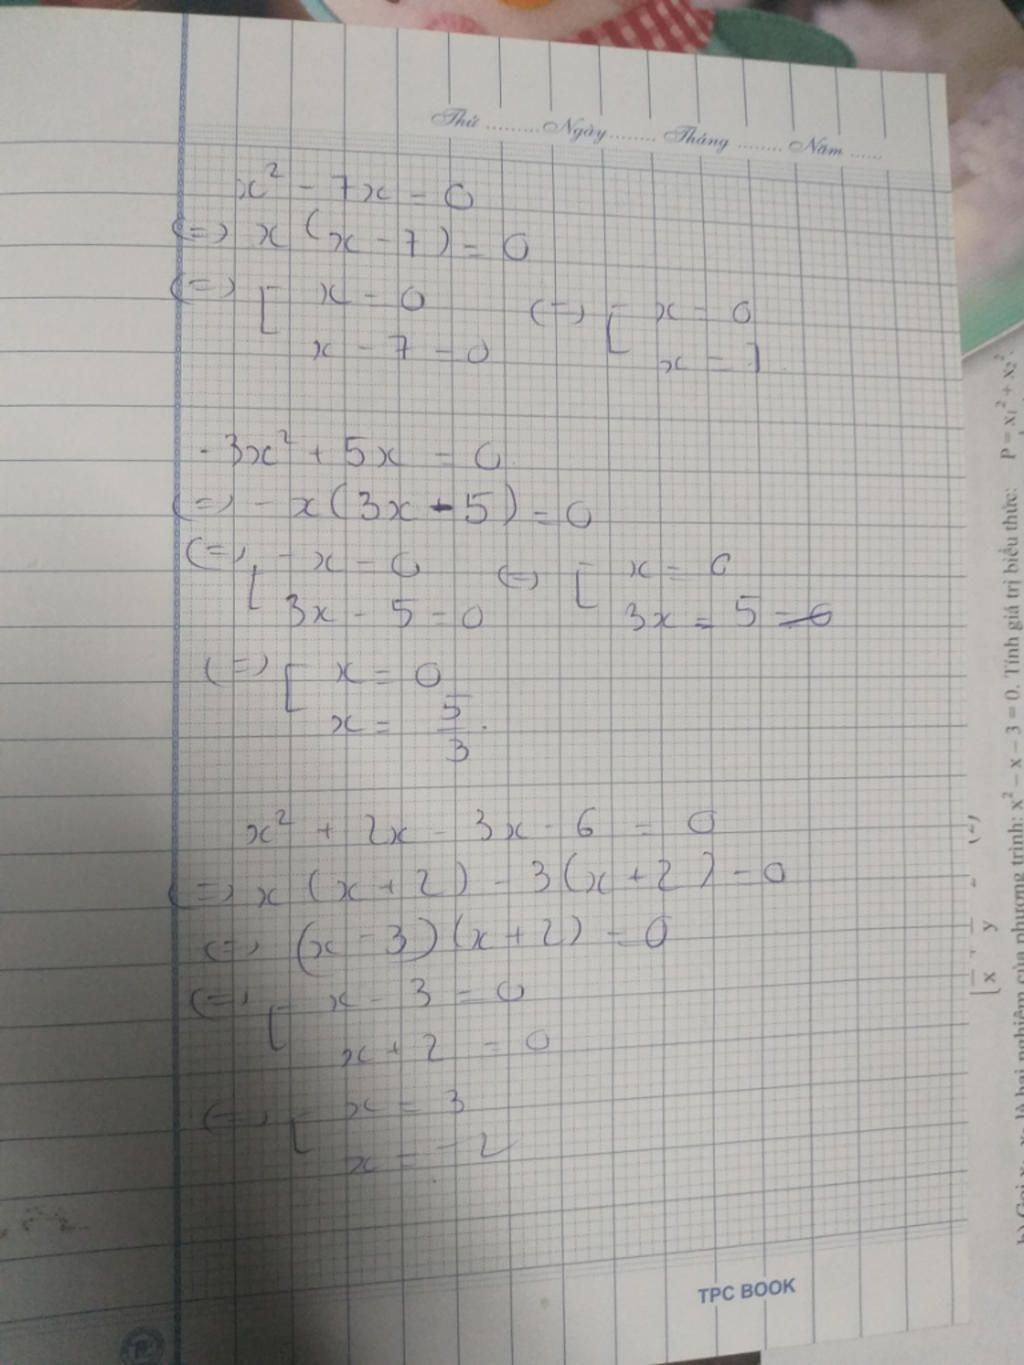 Thứ ......... Ngày ........ Tháng ........ Năm ......
x² - 7x = 0
(=) x (x - 7) = 0
(=) [ x = 0 (=) [ x = 0
x - 7 = 0 x = 7
- 3x² + 5x = 0
(=) - x (3x - 5) = 0
(=) [ - x = 0 (=) [ x = 0
3x - 5 = 0 3x = 5 = 0
(=) [ x = 0
x = 5/3.
x² + 2x - 3x - 6 = 0
(=) x (x + 2) - 3(x + 2) = 0
(=) (x - 3)(x + 2) = 0
(=) [ x - 3 = 0
x + 2 = 0
(=) [ x = 3
x = -2
TPC BOOK
P = x₁² + x₂².
là hai nghiệm của phương trình: x² - x - 3 = 0. Tính giá trị biểu thức: